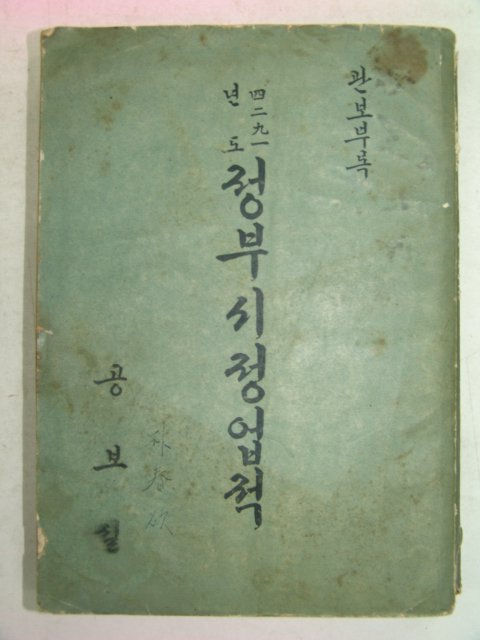 관보부록
四二九一
년도
정부시정업적
공보실
朴